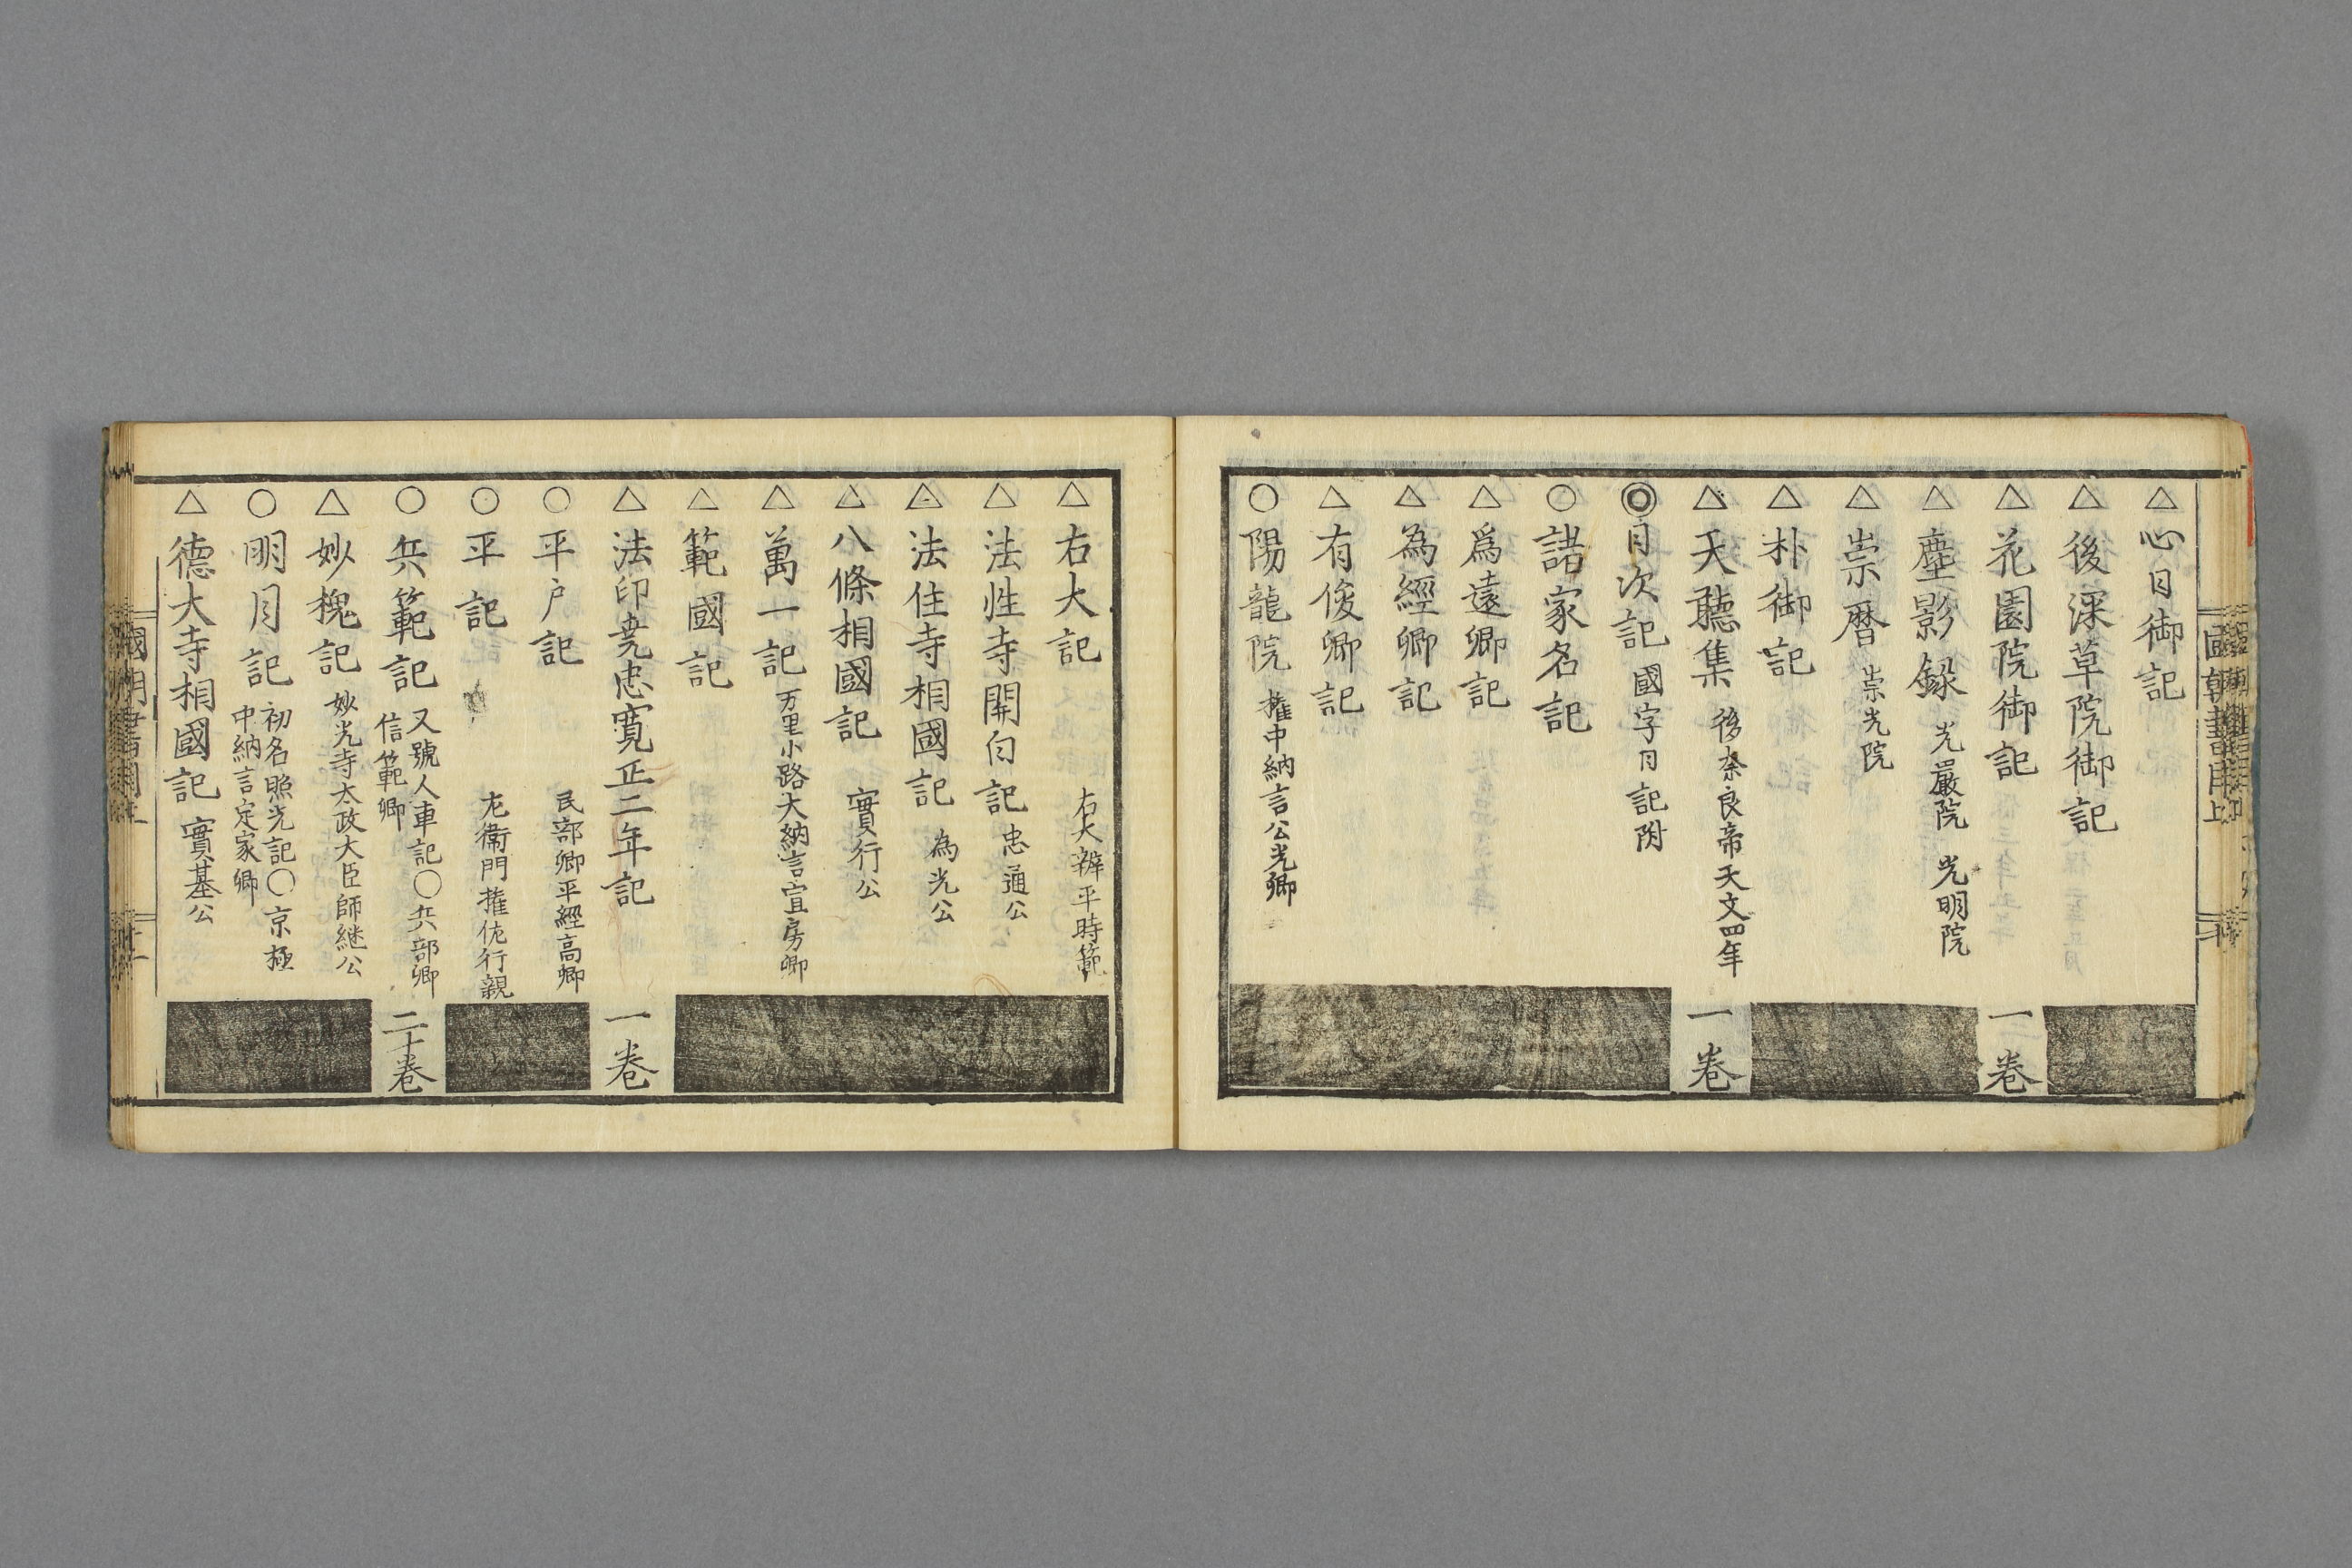 △心日御記
△後深草院御記
△花園院御記 一巻
△塵影録 光嚴院 光明院
△崇暦 崇光院
△朴御記
△天聽集 後奈良帝天文四年 一巻
◎日次記 國字日記附
○諸家名記
△爲遠卿記
△為經卿記
△有俊卿記
○陽龍院 權中納言公光卿
△右大記 右大辨平時範
△法性寺関白記 忠通公
△法住寺相國記 為光公
△八條相國記 實行公
△萬一記 万里小路大納言宣房卿
△範國記
△法印尭忠寛正二年記 一巻
○平户記 民部卿平經高卿
○平記 左衞門權佐行親
○兵範記 又號人車記○兵部卿
信範卿 二十巻
△妙槐記 妙光寺太政大臣師継公
○明月記 初名照光記○京極
中納言定家卿
△德大寺相國記 實基公